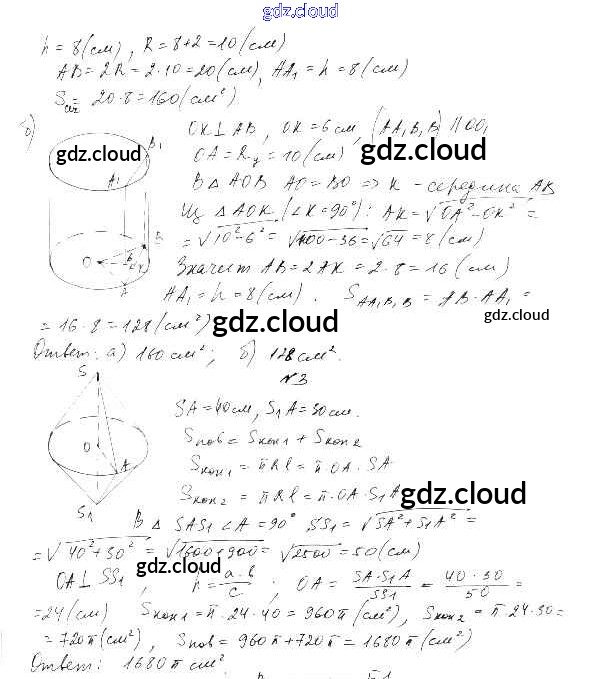 gdz.cloud
h = 8 (см), R = 8+2 = 10 (см)
AB = 2R = 2·10 = 20 (см), AA₁ = h = 8 (см)
Sсеч = 20·8 = 160 (см²)
б) OK⊥AB, OK = 6 см, (AA₁B₁B) || OO₁
gdz.cloud B₁ OA = Rу = 10 (см) gdz.cloud
A₁ В △ AOB AO = BO => K - середина AB
Из △ AOK (∠K = 90°): AK = √OA² - OK² =
= √10² - 6² = √100 - 36 = √64 = 8 (см)
O B K A
Значит AB = 2AK = 2·8 = 16 (см)
AA₁ = h = 8 (см). S AA₁B₁B = AB·AA₁ =
= 16·8 = 128 (см²) gdz.cloud gdz.cloud
Ответ: а) 160 см²; б) 128 см².
S №3
SA = 40 см, S₁A = 30 см.
O Sпов = Sкон1 + Sкон2
A Sкон1 = πRl = π·OA·SA
Sкон2 = πRl = π·OA·S₁A gdz.cloud
S₁ В △ SAS₁ ∠A = 90° SS₁ = √SA² + S₁A² =
= √40² + 30² = √1600 + 900 = √2500 = 50 (см)
gdz.cloud
OA⊥SS₁, h = a·b/c; OA = SA·S₁A/SS₁ = 40·30/50 =
= 24 (см) Sкон1 = π·24·40 = 960π (см²), Sкон2 = π·24·30 =
= 720π (см²), Sпов = 960π + 720π = 1680π (см²)
gdz.cloud
Ответ: 1680π см².